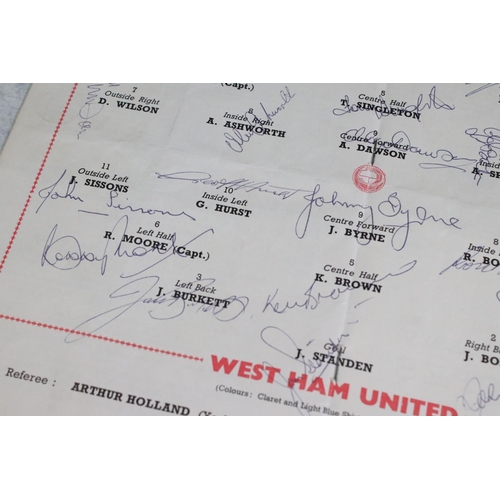 (Capt.)
7
Outside Right
D. WILSON
8
Inside Right
A. ASHWORTH
5
Centre Half
T. SINGLETON
9
Centre Forward
A. DAWSON
Inside
A. SE
11
Outside Left
J. SISSONS
John Sissons
10
Inside Left
G. HURST
Geoff Hurst
9
Centre Forward
J. BYRNE
Johnny Byrne
8
Inside R
R. BO
6
Left Half
R. MOORE (Capt.)
Bobby Moore
5
Centre Half
K. BROWN
Ken Brown
3
Left Back
J. BURKETT
Goal
J. STANDEN
2
Right B
J. BO
WEST HAM UNITED
(Colours: Claret and Light Blue Shi
Referee: ARTHUR HOLLAND